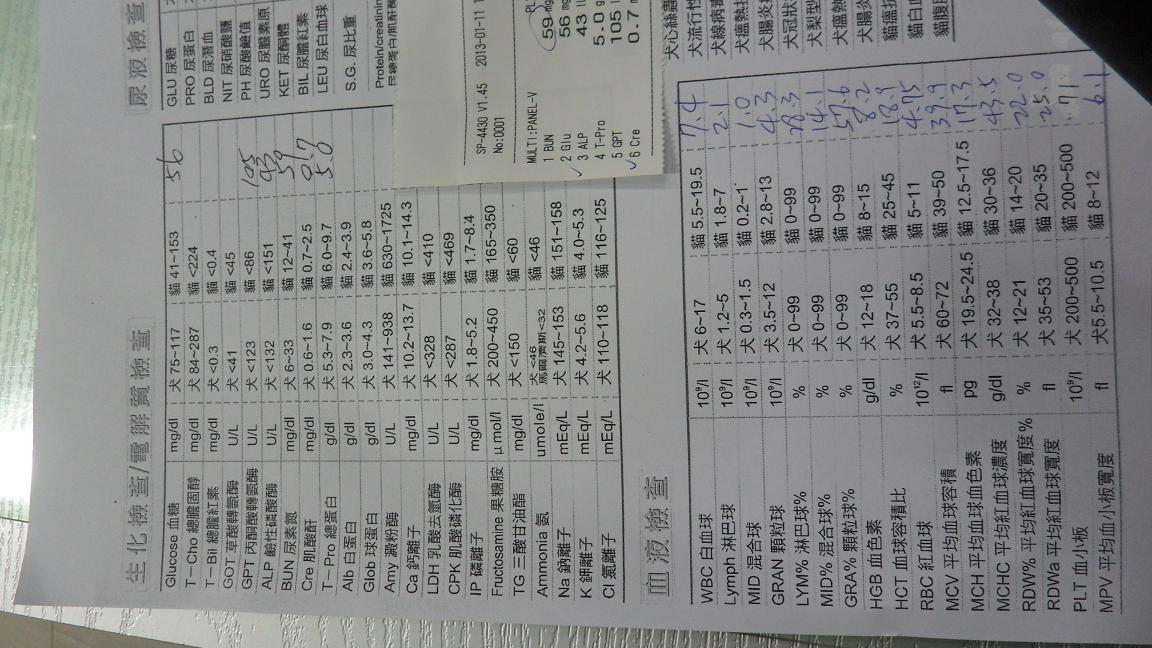 生化檢查/電解質檢查
Glucose 血糖 mg/dl 犬 75~117 貓 41~153 56
T-Cho 總膽固醇 mg/dl 犬 84~287 貓 <224
T-Bil 總膽紅素 mg/dl 犬 <0.3 貓 <0.4
GOT 草酸轉氨酶 U/L 犬 <41 貓 <45
GPT 丙酮酸轉氨酶 U/L 犬 <123 貓 <86 105
ALP 鹼性磷酸酶 U/L 犬 <132 貓 <151 43
BUN 尿素氮 mg/dl 犬 6~33 貓 12~41 59
Cre 肌酸酐 mg/dl 犬 0.6~1.6 貓 0.7~2.5 0.7
T-Pro 總蛋白 g/dl 犬 5.3~7.9 貓 6.0~9.7 5.0
Alb 白蛋白 g/dl 犬 2.3~3.6 貓 2.4~3.9
Glob 球蛋白 g/dl 犬 3.0~4.3 貓 3.6~5.8
Amy 澱粉酶 U/L 犬 141~938 貓 630~1725
Ca 鈣離子 mg/dl 犬 10.2~13.7 貓 10.1~14.3
LDH 乳酸去氫酶 U/L 犬 <328 貓 <410
CPK 肌酸磷化酶 U/L 犬 <287 貓 <469
IP 磷離子 mg/dl 犬 1.8~5.2 貓 1.7~8.4
Fuctosamine 果糖胺 μmol/l 犬 200~450 貓 165~350
TG 三酸甘油酯 mg/dl 犬 <150 貓 <60
Ammonia 氨 umole/l 犬 <46 馬爾濟斯<32 貓 <46
Na 鈉離子 mEq/L 犬 145~153 貓 151~158
K 鉀離子 mEq/L 犬 4.2~5.6 貓 4.0~5.3
Cl 氯離子 mEq/L 犬 110~118 貓 116~125
血液檢查
WBC 白血球 10⁹/l 犬 6~17 貓 5.5~19.5 7.4
Lymph 淋巴球 10⁹/l 犬 1.2~5 貓 1.8~7 2.1
MID 混合球 10⁹/l 犬 0.3~1.5 貓 0.2~1 1.0
GRAN 顆粒球 10⁹/l 犬 3.5~12 貓 2.8~13 4.3
LYM% 淋巴球% % 犬 0~99 貓 0~99 28.3
MID% 混合球% % 犬 0~99 貓 0~99 14.1
GRA% 顆粒球% % 犬 0~99 貓 0~99 57.6
HGB 血色素 g/dl 犬 12~18 貓 8~15 8.2
HCT 血球容積比 % 犬 37~55 貓 25~45 18.9
RBC 紅血球 10¹²/l 犬 5.5~8.5 貓 5~11 4.75
MCV 平均血球容積 fl 犬 60~72 貓 39~50 39.9
MCH 平均血球血色素 pg 犬 19.5~24.5 貓 12.5~17.5 17.3
MCHC 平均紅血球濃度 g/dl 犬 32~38 貓 30~36 43.5
RDW% 平均紅血球寬度% % 犬 12~21 貓 14~20 22.0
RDWa 平均紅血球寬度 fl 犬 35~53 貓 20~35 25.0
PLT 血小板 10⁹/l 犬 200~500 貓 200~500 71
MPV 平均血小板寬度 fl 犬5.5~10.5 貓 8~12 6.1
尿液檢查
GLU 尿糖
PRO 尿蛋白
BLD 尿潛血
NIT 尿硝酸鹽
PH 尿酸鹼值
URO 尿膽素原
KET 尿酮體
BIL 尿膽紅素
LEU 尿白血球
S.G. 尿比重
Protein/creatinin
尿總蛋白/肌酐酸
SP-4430 V1.45 2013-01-11
No:0001
MULTI:PANEL-V
1 BUN 59 mg
2 Glu 56 mg
3 ALP 43 IU
4 T-Pro 5.0 g
5 GPT 105 IU
6 Cre 0.7 m
犬心絲蟲
犬流行性
犬線病毒
犬瘟熱抗
犬腸炎抗
犬冠狀
犬梨型
犬瘟熱
犬腸炎
貓瘟抗
貓白血
貓腹